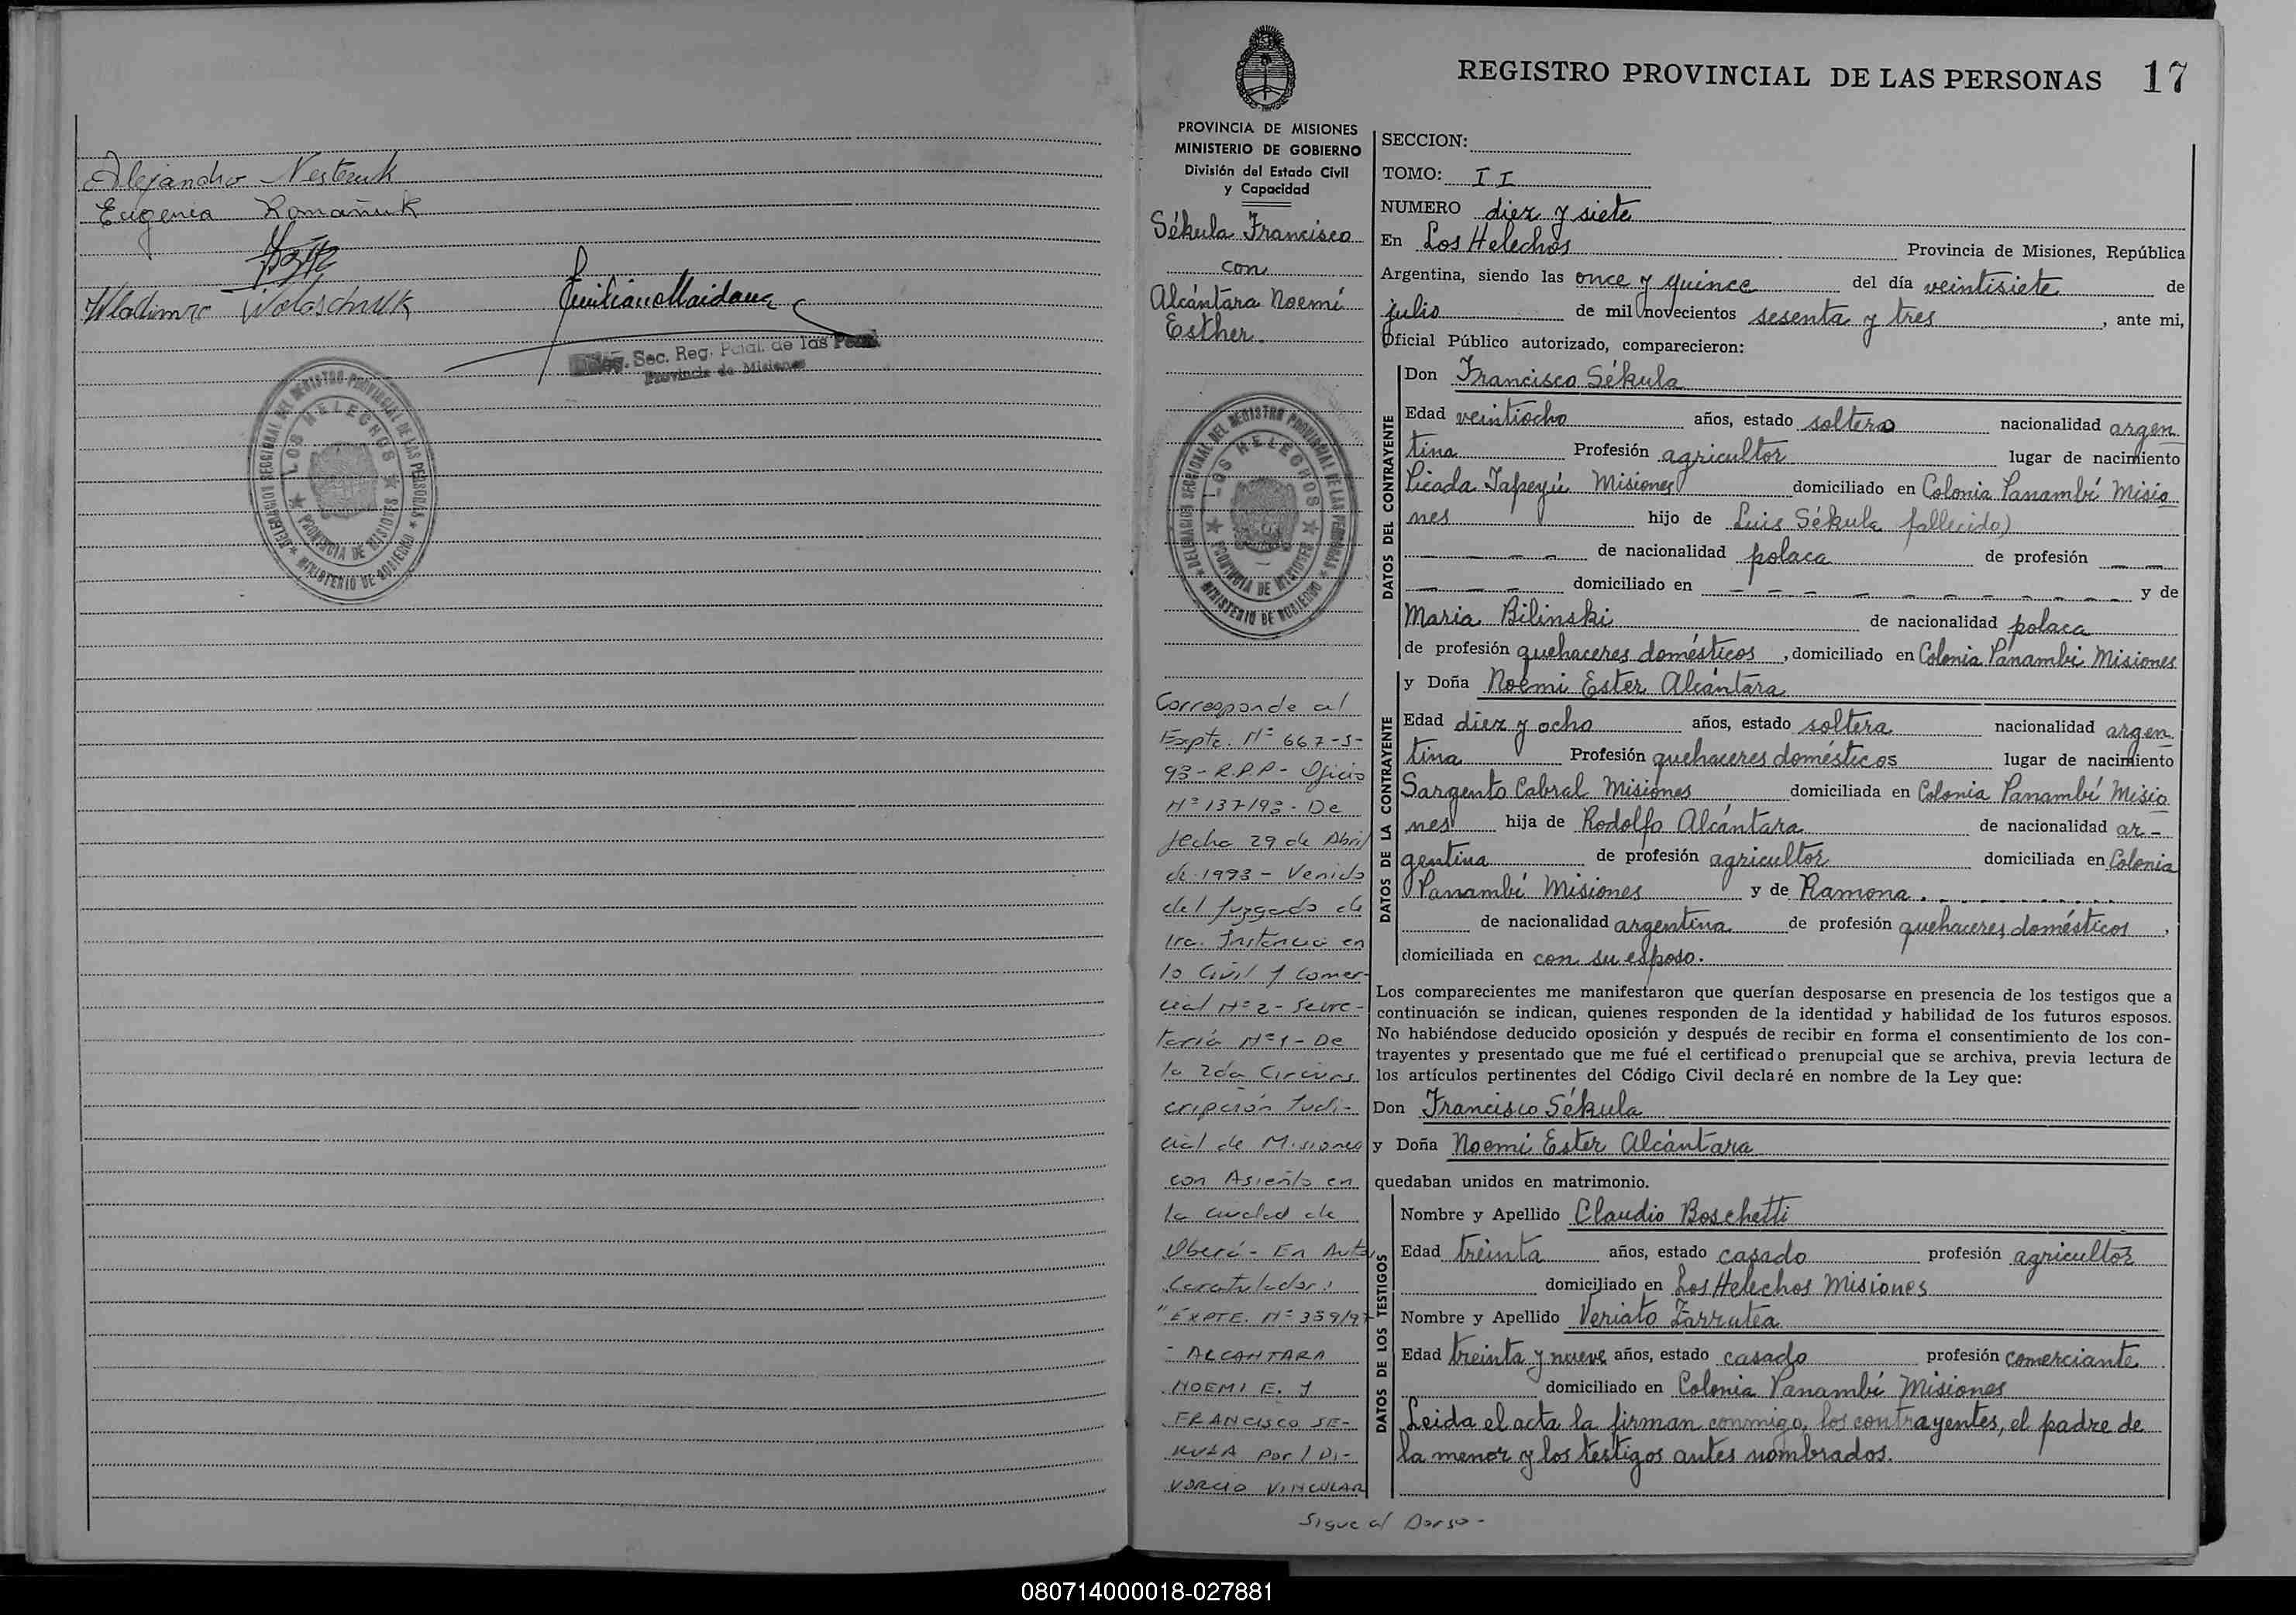 Alejandro Nesteruk
Eugenia Romañuk
Wladimiro Woloschuk
Emiliano Maidana
Deleg. Sec. Reg. Pcial. de las Pers.
Provincia de Misiones
DELEGACION SECCIONAL DEL REGISTRO PROVINCIAL DE LAS PERSONAS
LOS HELECHOS
PROVINCIA DE MISIONES
MINISTERIO DE GOBIERNO
REGISTRO PROVINCIAL DE LAS PERSONAS 17
PROVINCIA DE MISIONES
MINISTERIO DE GOBIERNO
División del Estado Civil
y Capacidad
Sékula Francisco
con
Alcántara Noemí
Esther.
DELEGACION SECCIONAL DEL REGISTRO PROVINCIAL DE LAS PERSONAS
LOS HELECHOS
PROVINCIA DE MISIONES
MINISTERIO DE GOBIERNO
Corresponde al
Expte. Nº 667-S-
93- R.P.P- Oficio
Nº 137/93- De
fecha 29 de Abril
de 1993- Venido
del Juzgado de
1ra. Instancia en
lo Civil y Comer-
cial Nº 2- Secre-
taría Nº 1- De
la 2da Circuns
cripción Judi-
cial de Misiones
con Asiento en
la ciudad de
Oberá- En Autos
Caratulados:
"EXPTE. Nº 359/92
- ALCANTARA
NOEMI E. Y
FRANCISCO SE-
KULA por / DI-
VORCIO VINCULAR
Sigue al Dorso-
SECCION:
TOMO: II
NUMERO diez y siete
En Los Helechos Provincia de Misiones, República
Argentina, siendo las once y quince del día veintisiete de
julio de mil novecientos sesenta y tres, ante mi,
Oficial Público autorizado, comparecieron:
DATOS DEL CONTRAYENTE
Don Francisco Sékula
Edad veintiocho años, estado soltero nacionalidad argen
tina Profesión agricultor lugar de nacimiento
Picada Yapeyú Misiones domiciliado en Colonia Panambí Misio
nes hijo de Luis Sékula fallecido)
de nacionalidad polaca de profesión — —
domiciliado en — — — y de
Maria Bilinski de nacionalidad polaca
de profesión quehaceres domésticos, domiciliado en Colonia Panambí Misiones
DATOS DE LA CONTRAYENTE
y Doña Noemi Ester Alcántara
Edad diez y ocho años, estado soltera nacionalidad argen
tina Profesión quehaceres domésticos lugar de nacimiento
Sargento Cabral Misiones domiciliada en Colonia Panambí Misio
nes hija de Rodolfo Alcántara de nacionalidad ar-
gentina de profesión agricultor domiciliada en Colonia
Panambí Misiones y de Ramona.
de nacionalidad argentina de profesión quehaceres domésticos,
domiciliada en con su esposo.
Los comparecientes me manifestaron que querían desposarse en presencia de los testigos que a
continuación se indican, quienes responden de la identidad y habilidad de los futuros esposos.
No habiéndose deducido oposición y después de recibir en forma el consentimiento de los con-
trayentes y presentado que me fué el certificado prenupcial que se archiva, previa lectura de
los artículos pertinentes del Código Civil declaré en nombre de la Ley que:
Don Francisco Sékula
y Doña Noemí Ester Alcántara
quedaban unidos en matrimonio.
DATOS DE LOS TESTIGOS
Nombre y Apellido Claudio Boschetti
Edad treinta años, estado casado profesión agricultor
domiciliado en Los Helechos Misiones
Nombre y Apellido Veriato Zarrutea
Edad treinta y nueve años, estado casado profesión comerciante
domiciliado en Colonia Panambí Misiones
Leida el acta la firman conmigo, los contrayentes, el padre de
la menor y los testigos antes nombrados.
080714000018-027881